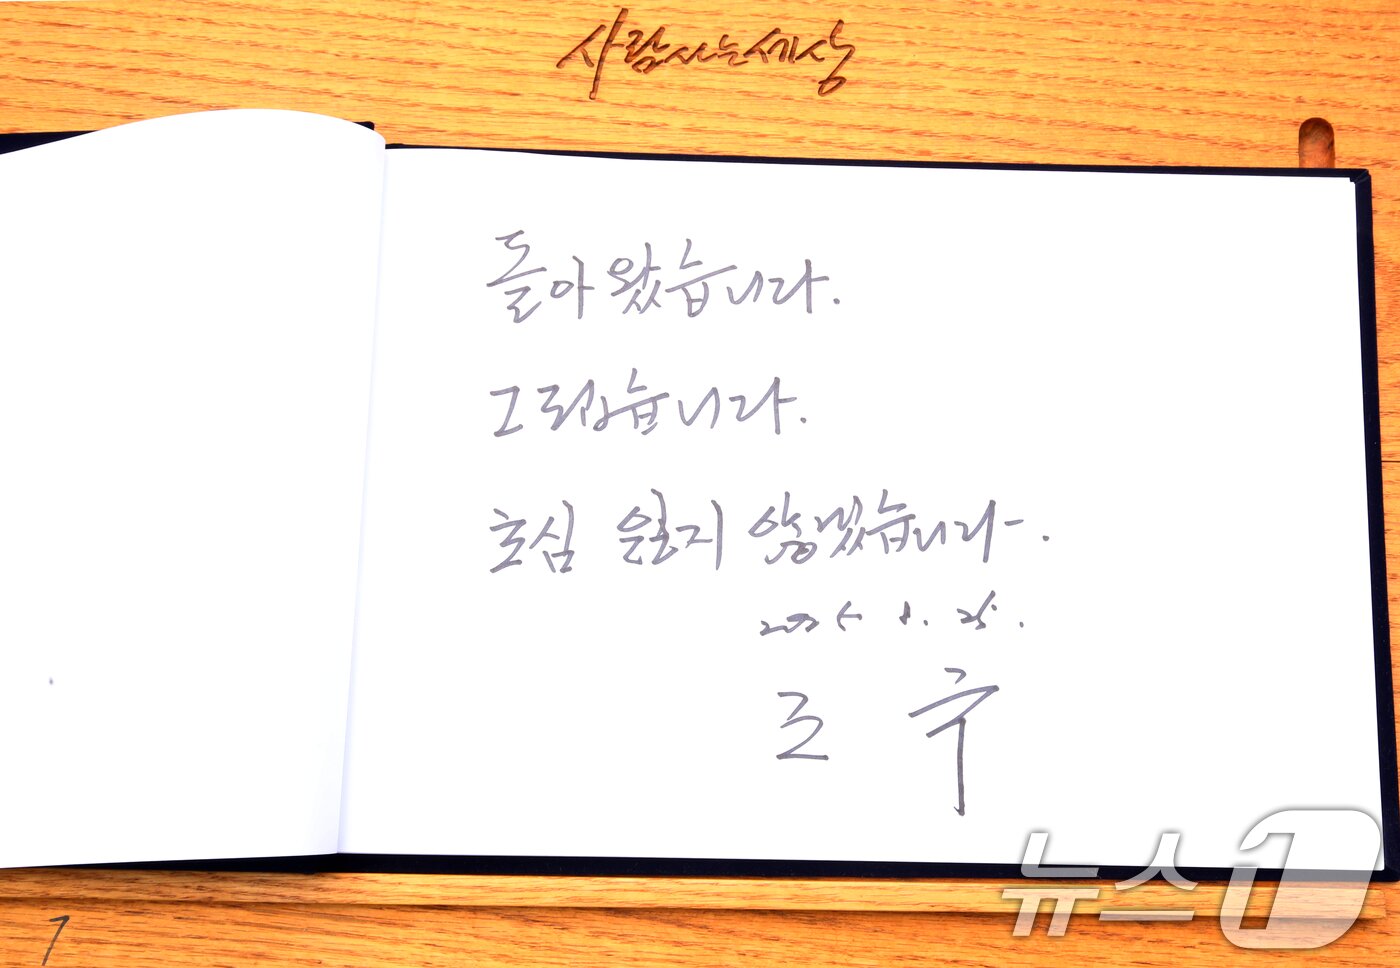 사람사는세상
돌아왔습니다.
그립습니다.
초심 잃지 않겠습니다.
2025 8. 25.
조 국
뉴스1
7